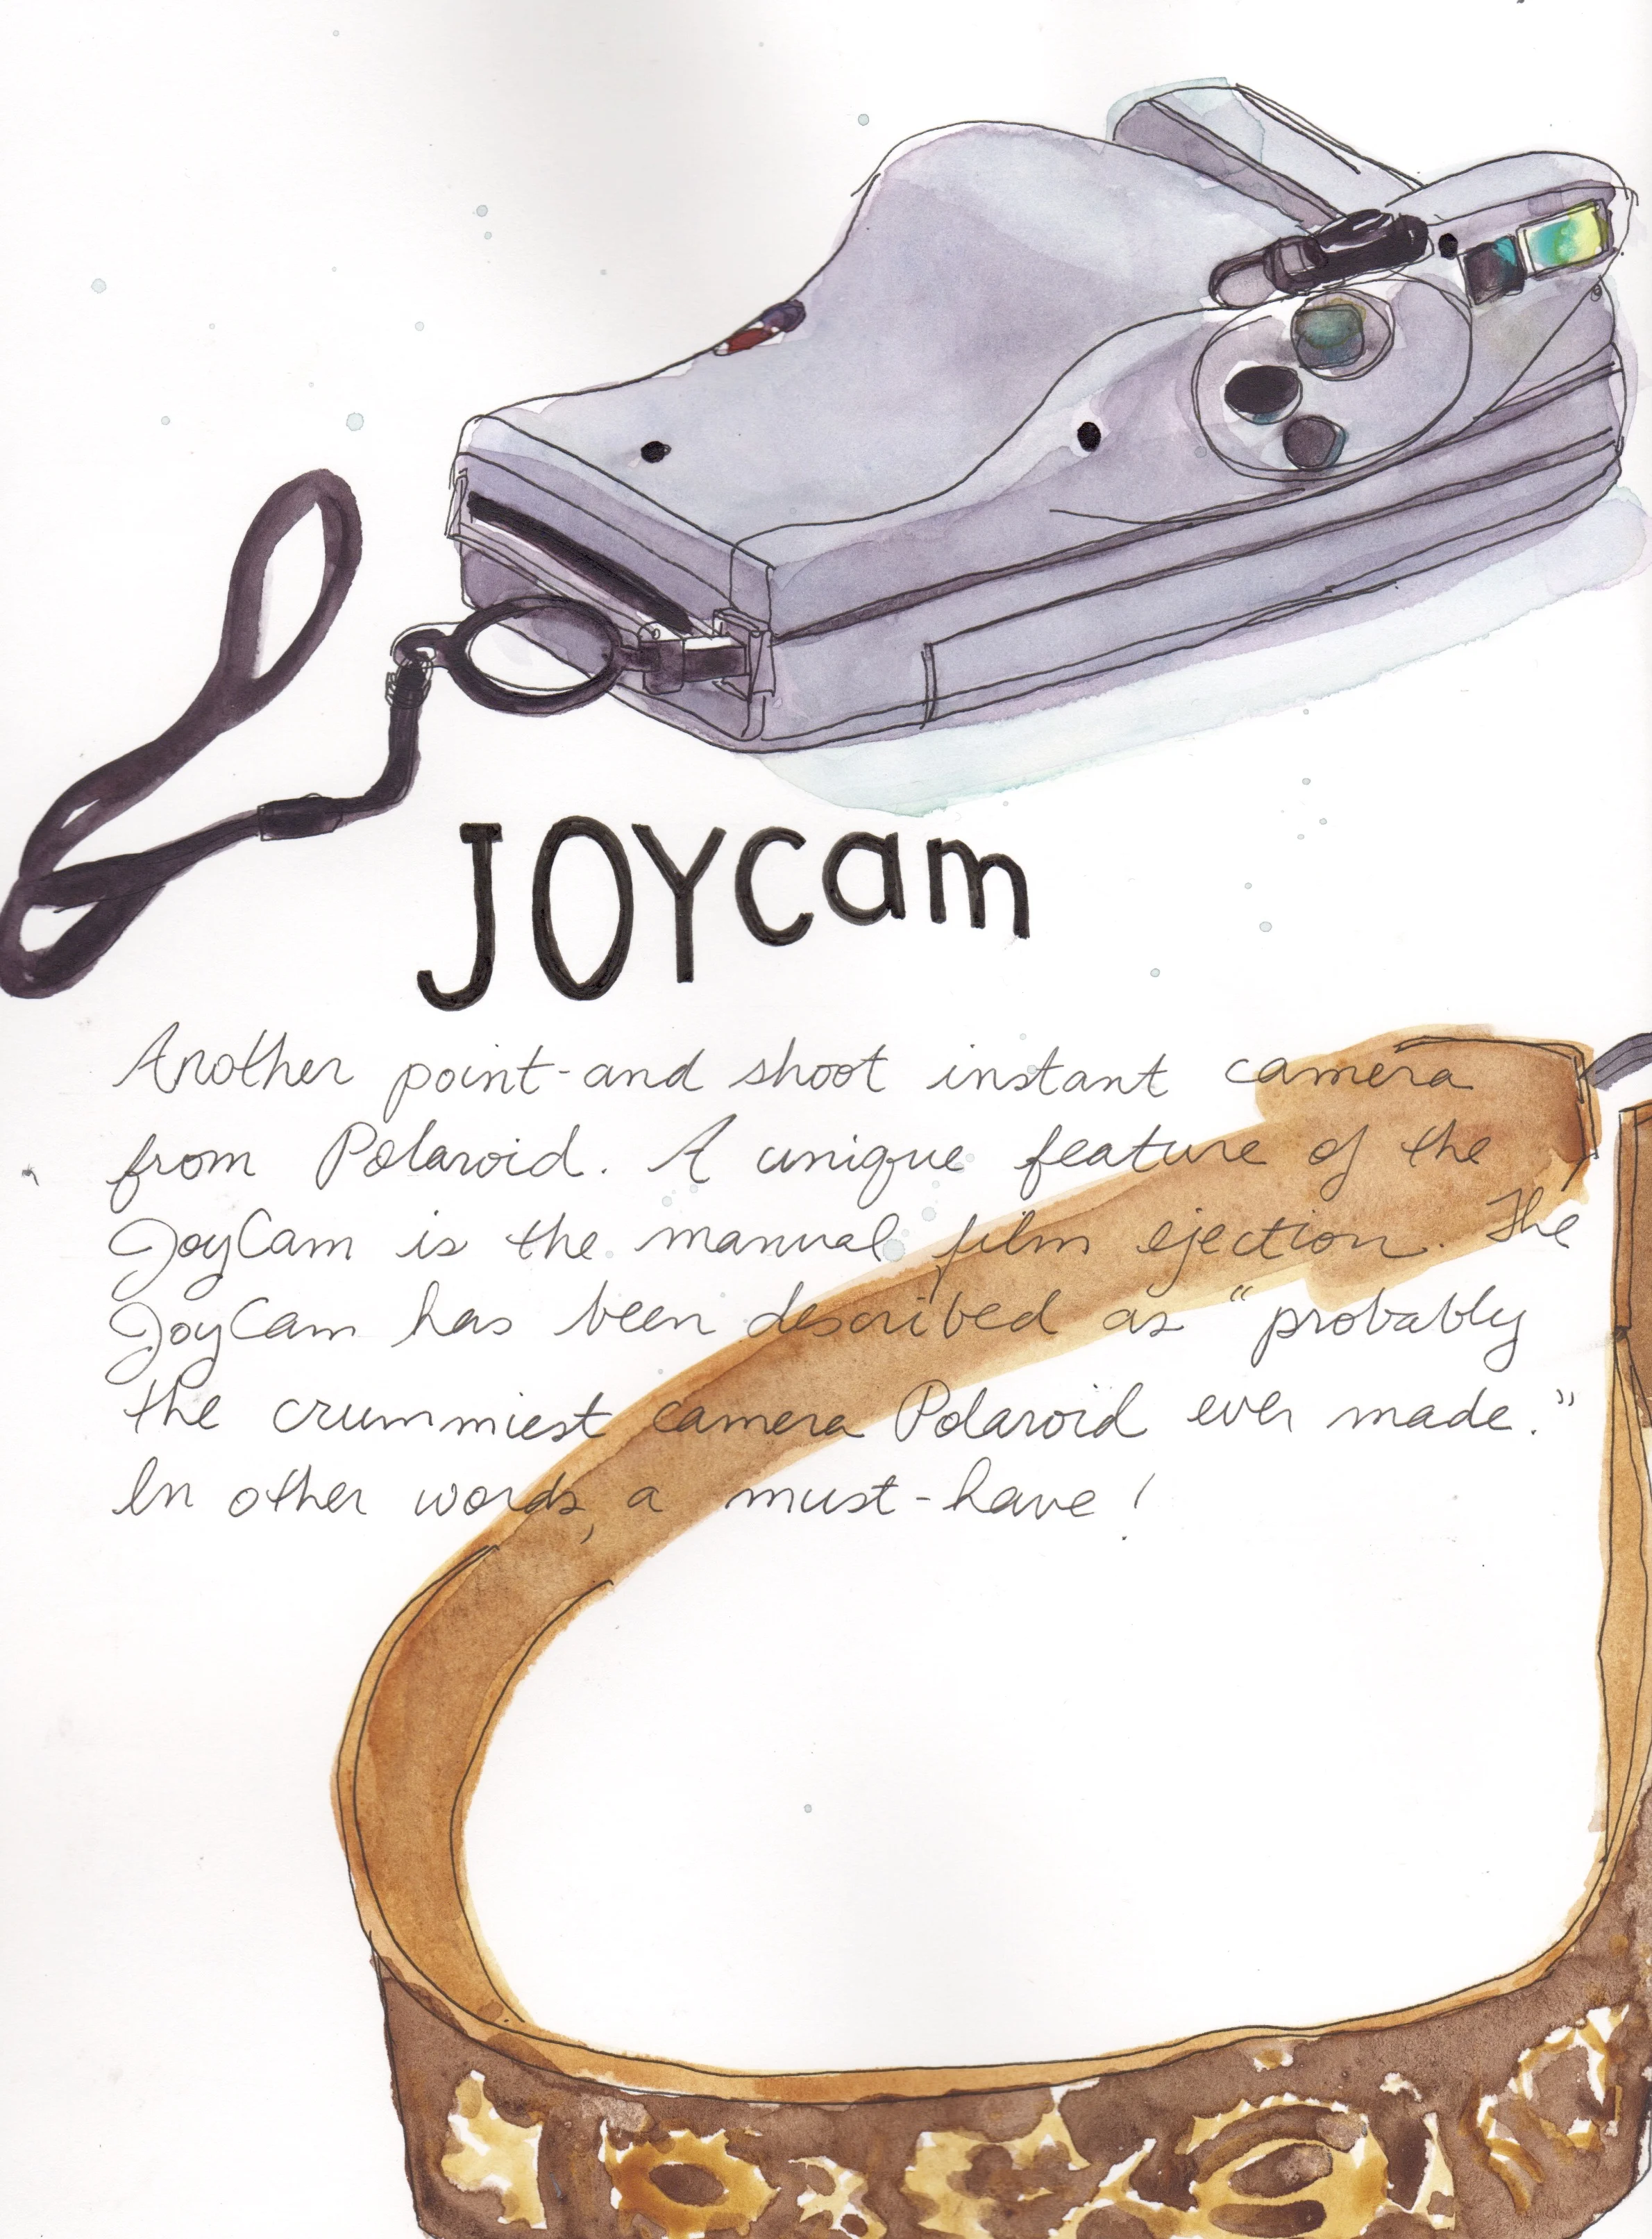 JOYcam
Another point-and shoot instant camera
from Polaroid. A unique feature of the
JoyCam is the manual film ejection. The
JoyCam has been described as "probably
the crummiest camera Polaroid ever made."
In other words, a must-have!